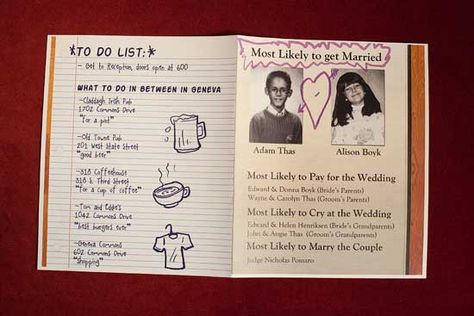 *TO DO LIST:*
- Get to Reception, doors open at 600
WHAT TO DO IN BETWEEN IN GENEVA
-Claddagh Irish Pub
1702 Commons Drive
"for a pint"
-Old Towne Pub
201 West State Street
"good beer"
-318 Coffeehouse
318 S. Third Street
"for a cup of coffee"
-Tom and Eddie's
1042 Commons Drive
"best burgers ever"
-Geneva Commons
602 Commons Drive
"shopping"
Most Likely to get Married
Adam Thas
Alison Boyk
Most Likely to Pay for the Wedding
Edward & Donna Boyk (Bride's Parents)
Wayne & Carolyn Thas (Groom's Parents)
Most Likely to Cry at the Wedding
Edward & Helen Henriksen (Bride's Grandparents)
John & Angie Thas (Groom's Grandparents)
Most Likely to Marry the Couple
Judge Nicholas Pomaro